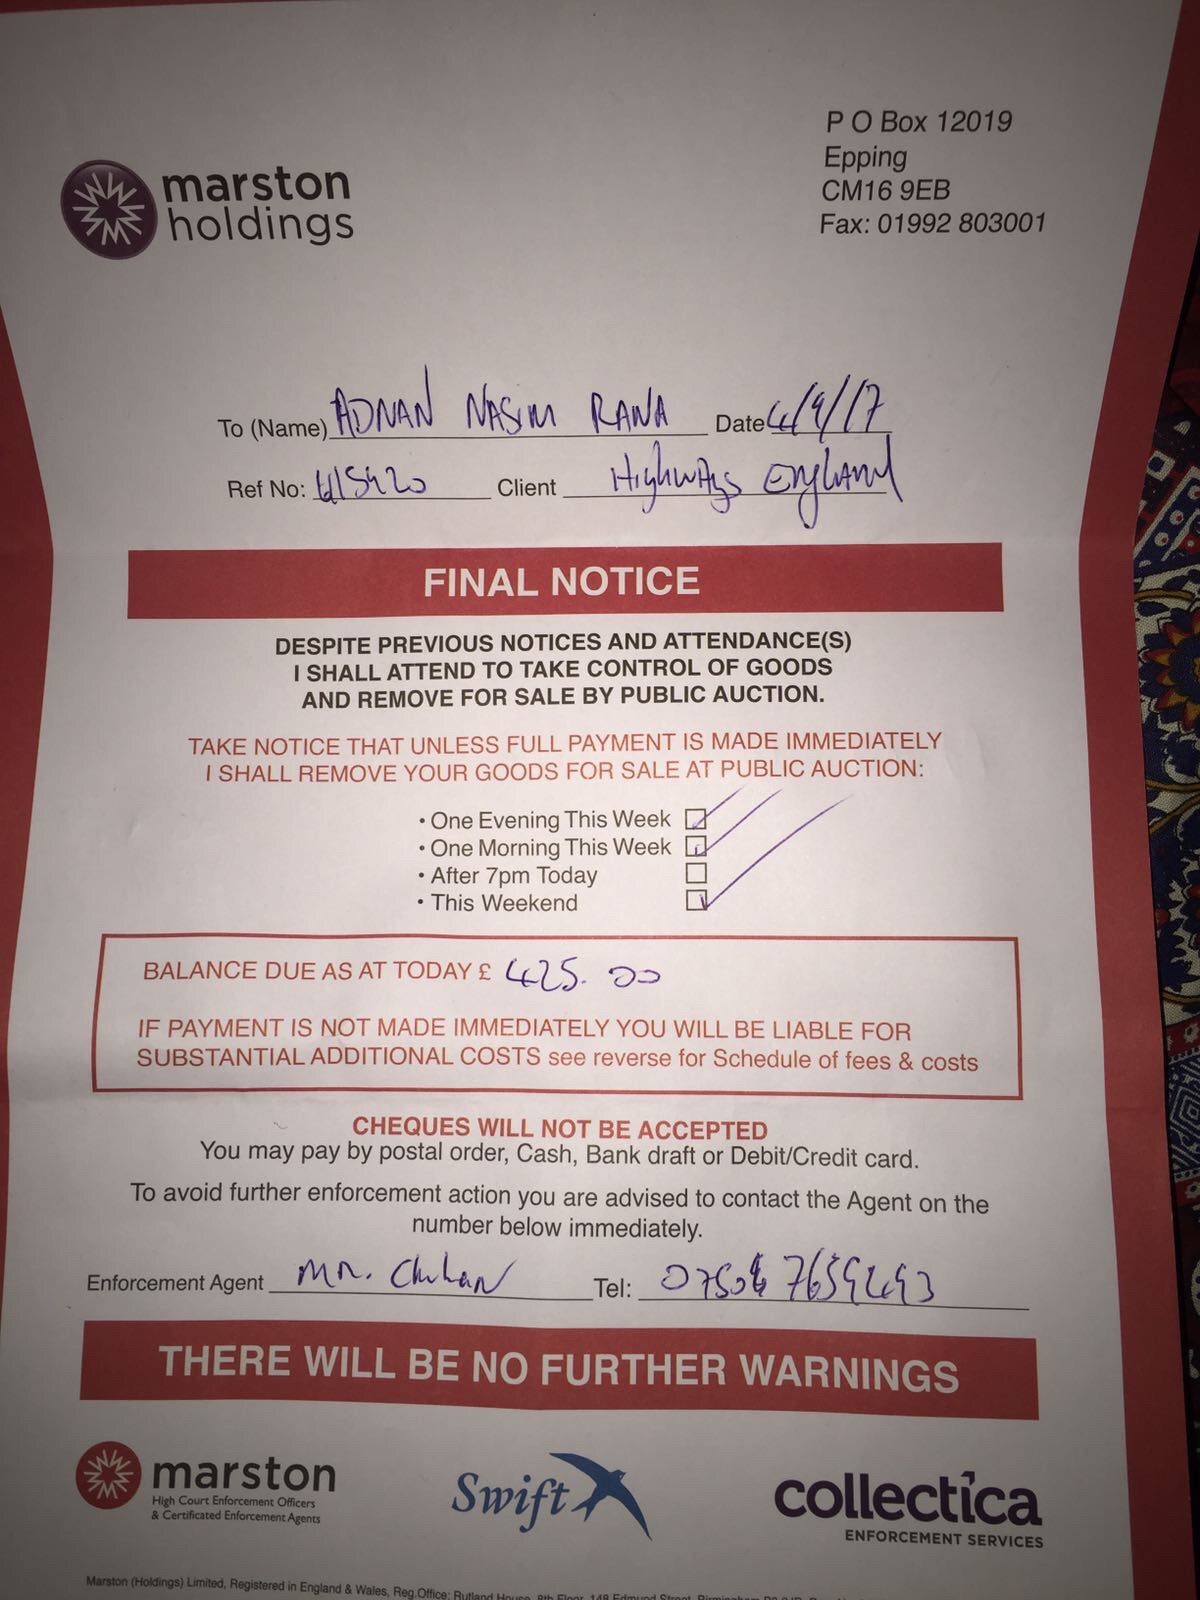 marston
holdings
P O Box 12019
Epping
CM16 9EB
Fax: 01992 803001
To (Name) ADNAN NASIM RANA Date 4/9/17
Ref No: 615420 Client Highways England
FINAL NOTICE
DESPITE PREVIOUS NOTICES AND ATTENDANCE(S)
I SHALL ATTEND TO TAKE CONTROL OF GOODS
AND REMOVE FOR SALE BY PUBLIC AUCTION.
TAKE NOTICE THAT UNLESS FULL PAYMENT IS MADE IMMEDIATELY
I SHALL REMOVE YOUR GOODS FOR SALE AT PUBLIC AUCTION:
• One Evening This Week
• One Morning This Week
• After 7pm Today
• This Weekend
BALANCE DUE AS AT TODAY £ 425.00
IF PAYMENT IS NOT MADE IMMEDIATELY YOU WILL BE LIABLE FOR
SUBSTANTIAL ADDITIONAL COSTS see reverse for Schedule of fees & costs
CHEQUES WILL NOT BE ACCEPTED
You may pay by postal order, Cash, Bank draft or Debit/Credit card.
To avoid further enforcement action you are advised to contact the Agent on the
number below immediately.
Enforcement Agent Mr. Tel:
THERE WILL BE NO FURTHER WARNINGS
marston
High Court Enforcement Officers
& Certificated Enforcement Agents
Swift
collectica
ENFORCEMENT SERVICES
Marston (Holdings) Limited, Registered in England & Wales, Reg.Office: Rutland House, 8th Floor, 148 Edmund Street,